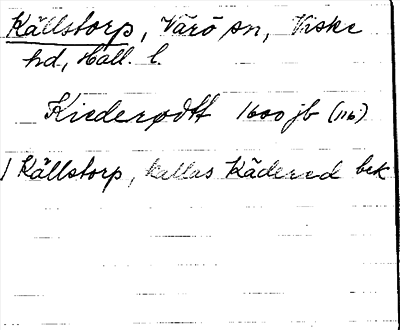 Källstorp, Värö sn, Viske
hd, Hall. l.
Kiederødtt 1600 jb (116)
1 Källstorp, kallas Kädered bek